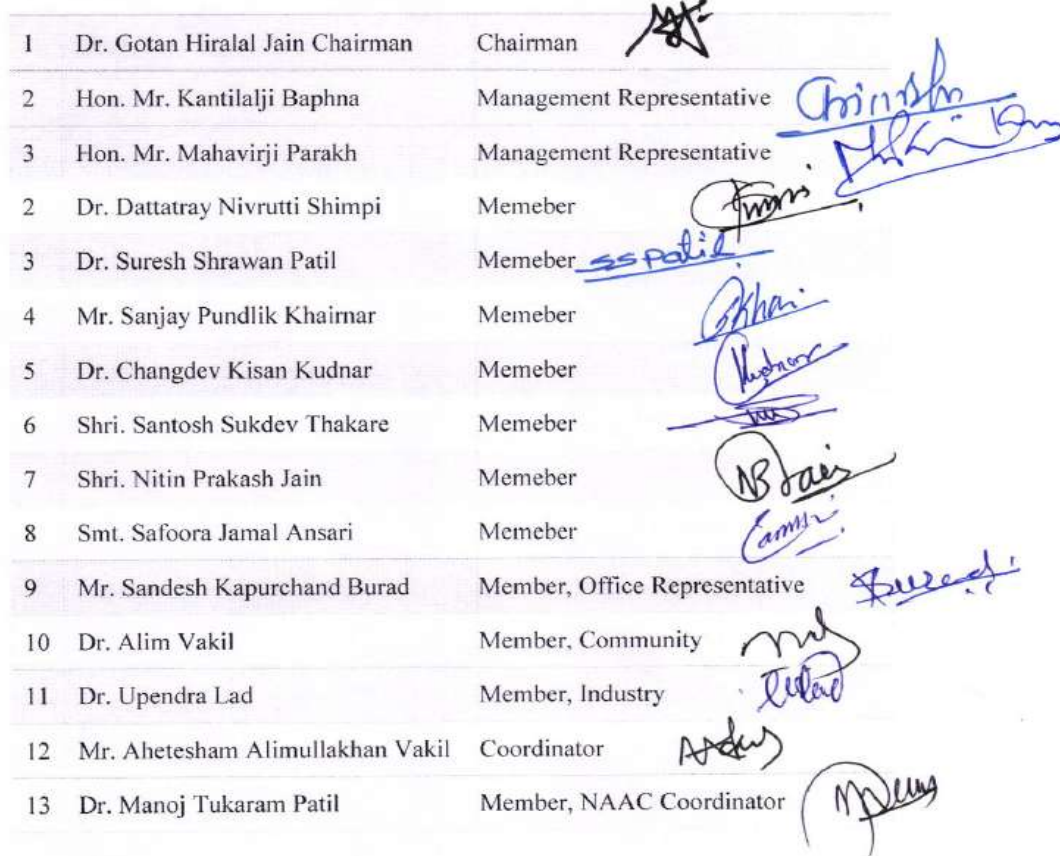 1 Dr. Gotan Hiralal Jain Chairman Chairman
2 Hon. Mr. Kantilalji Baphna Management Representative
3 Hon. Mr. Mahavirji Parakh Management Representative
2 Dr. Dattatray Nivrutti Shimpi Memeber
3 Dr. Suresh Shrawan Patil Memeber SSPatil
4 Mr. Sanjay Pundlik Khairnar Memeber
5 Dr. Changdev Kisan Kudnar Memeber Kudnar
6 Shri. Santosh Sukdev Thakare Memeber
7 Shri. Nitin Prakash Jain Memeber NBJain
8 Smt. Safoora Jamal Ansari Memeber
9 Mr. Sandesh Kapurchand Burad Member, Office Representative Burad
10 Dr. Alim Vakil Member, Community
11 Dr. Upendra Lad Member, Industry
12 Mr. Ahetesham Alimullakhan Vakil Coordinator
13 Dr. Manoj Tukaram Patil Member, NAAC Coordinator